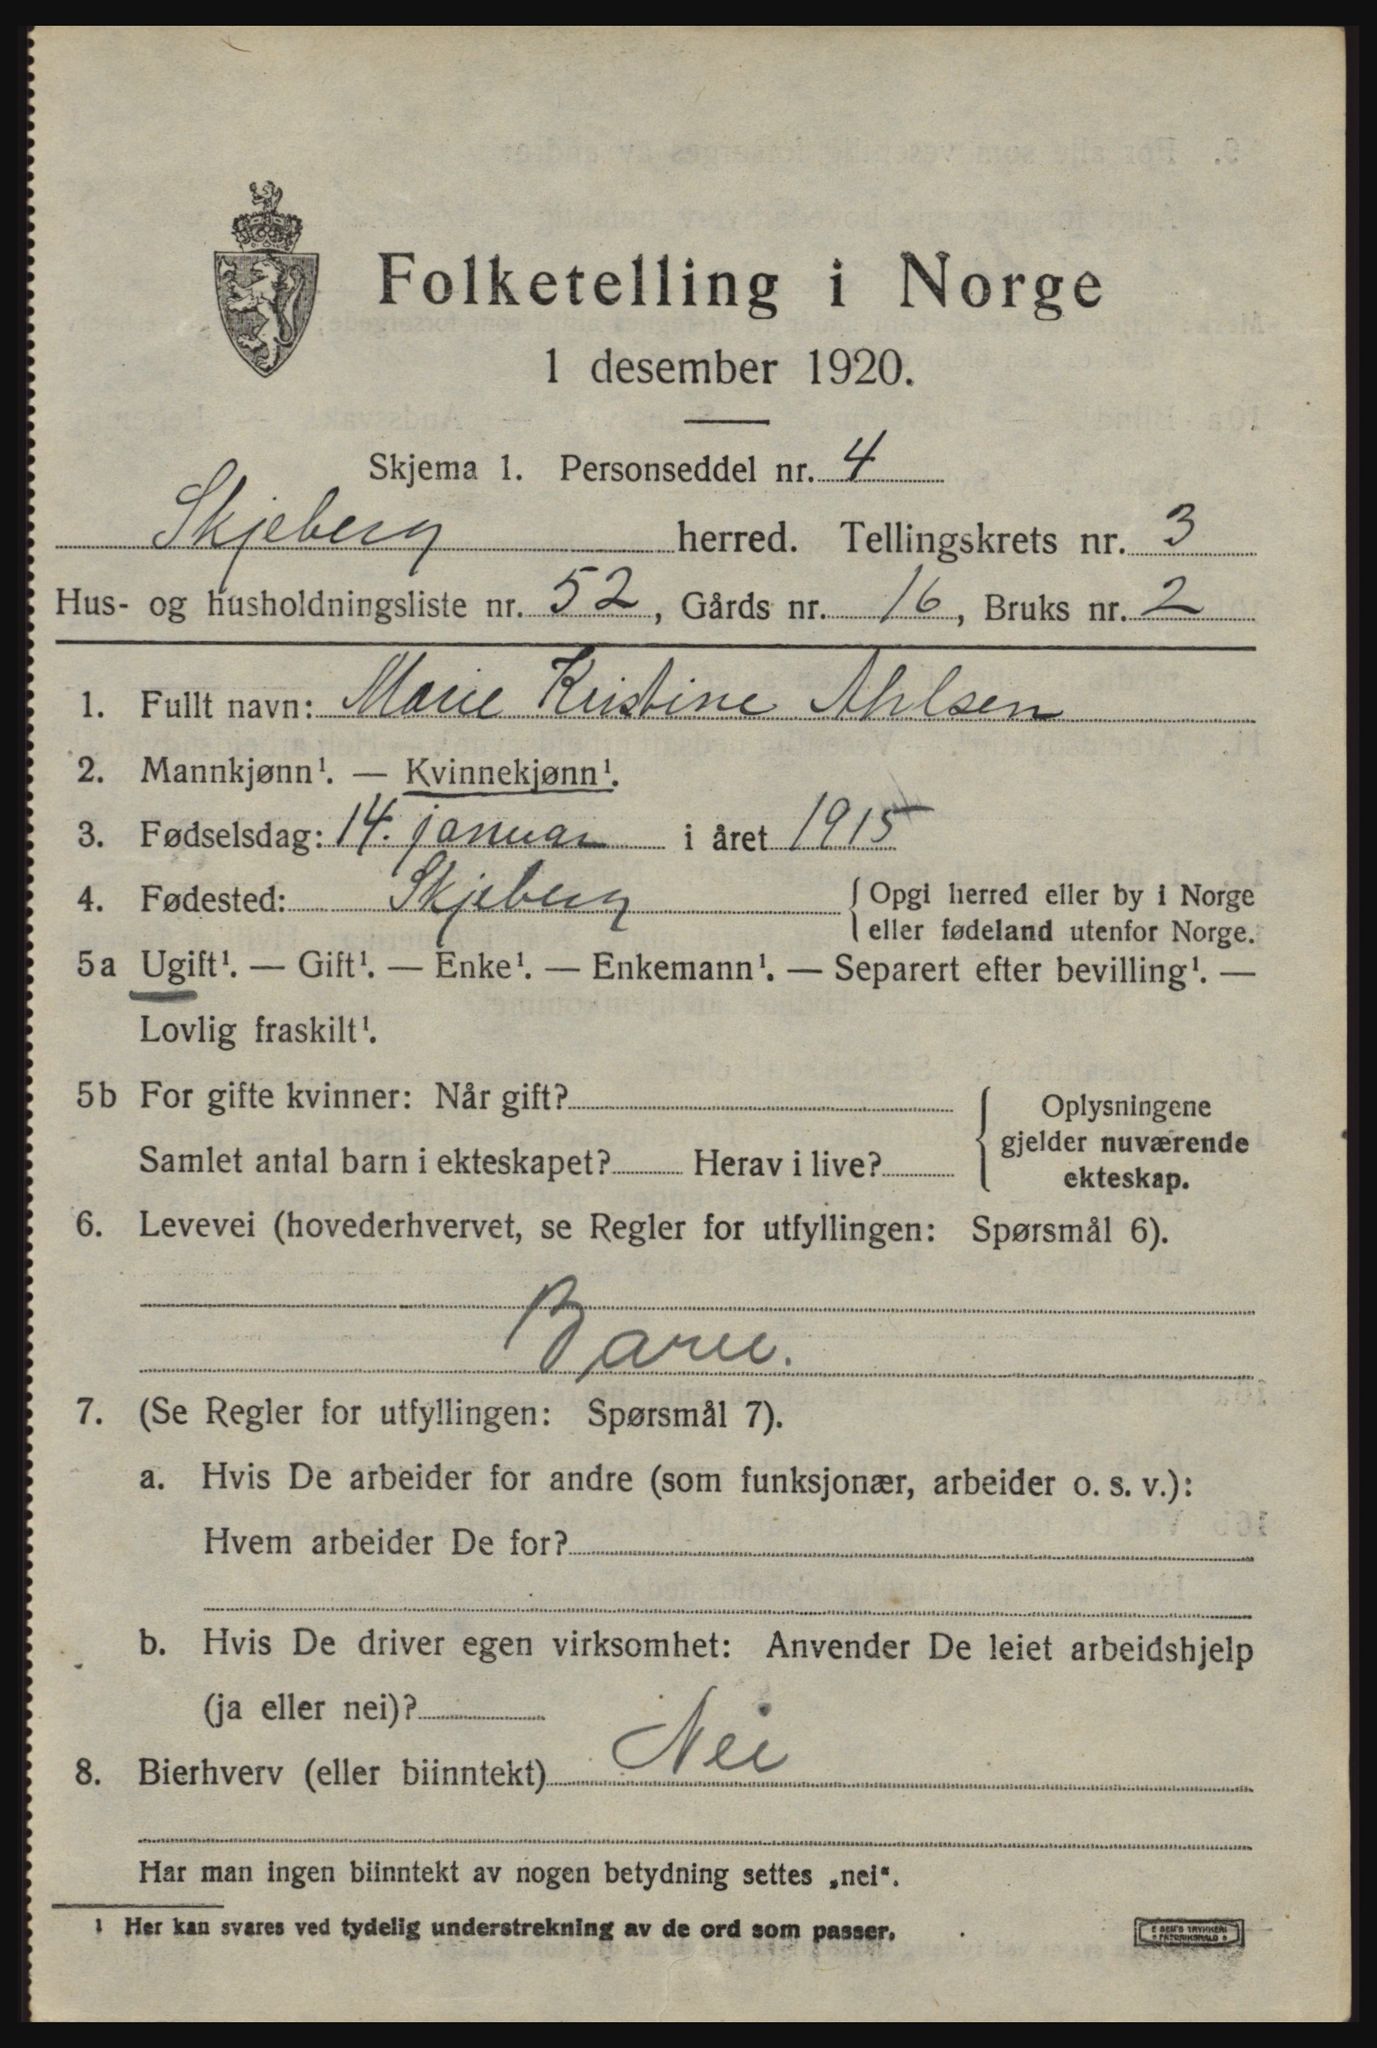 Folketelling i Norge
1 desember 1920.
Skjema 1. Personseddel nr. 4
Skjeberg herred. Tellingskrets nr. 3
Hus- og husholdningsliste nr. 52, Gårds nr. 16, Bruks nr. 2
1. Fullt navn: Marie Kristine Ahlsen
2. Mannkjønn¹. — Kvinnekjønn¹.
3. Fødselsdag: 14. januar i året 1915
4. Fødested: Skjeberg { Opgi herred eller by i Norge
eller fødeland utenfor Norge.
5a Ugift¹. — Gift¹. — Enke¹. — Enkemann¹. — Separert efter bevilling¹. —
Lovlig fraskilt¹.
5b For gifte kvinner: Når gift?
Samlet antal barn i ekteskapet? Herav i live?
{ Oplysningene
gjelder nuværende
ekteskap.
6. Levevei (hovederhvervet, se Regler for utfyllingen: Spørsmål 6).
Barn.
7. (Se Regler for utfyllingen: Spørsmål 7).
a. Hvis De arbeider for andre (som funksjonær, arbeider o. s. v.):
Hvem arbeider De for?
b. Hvis De driver egen virksomhet: Anvender De leiet arbeidshjelp
(ja eller nei)?
8. Bierhverv (eller biinntekt) Nei
Har man ingen biinntekt av nogen betydning settes „nei“.
1 Her kan svares ved tydelig understrekning av de ord som passer.